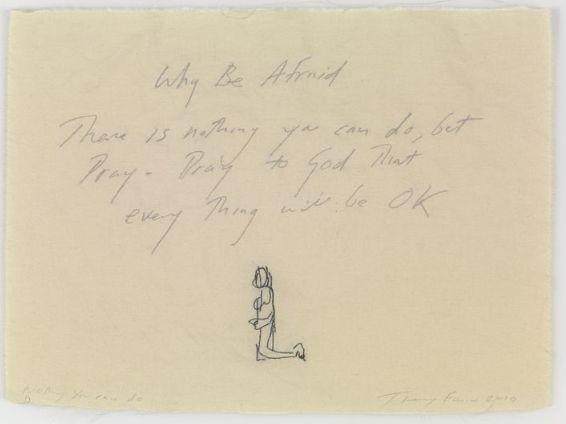 Why Be Afraid
There is nothing you can do, but
Pray - Pray to God That
every Thing will be OK
Nothing you can do
Tracey Emin 2010